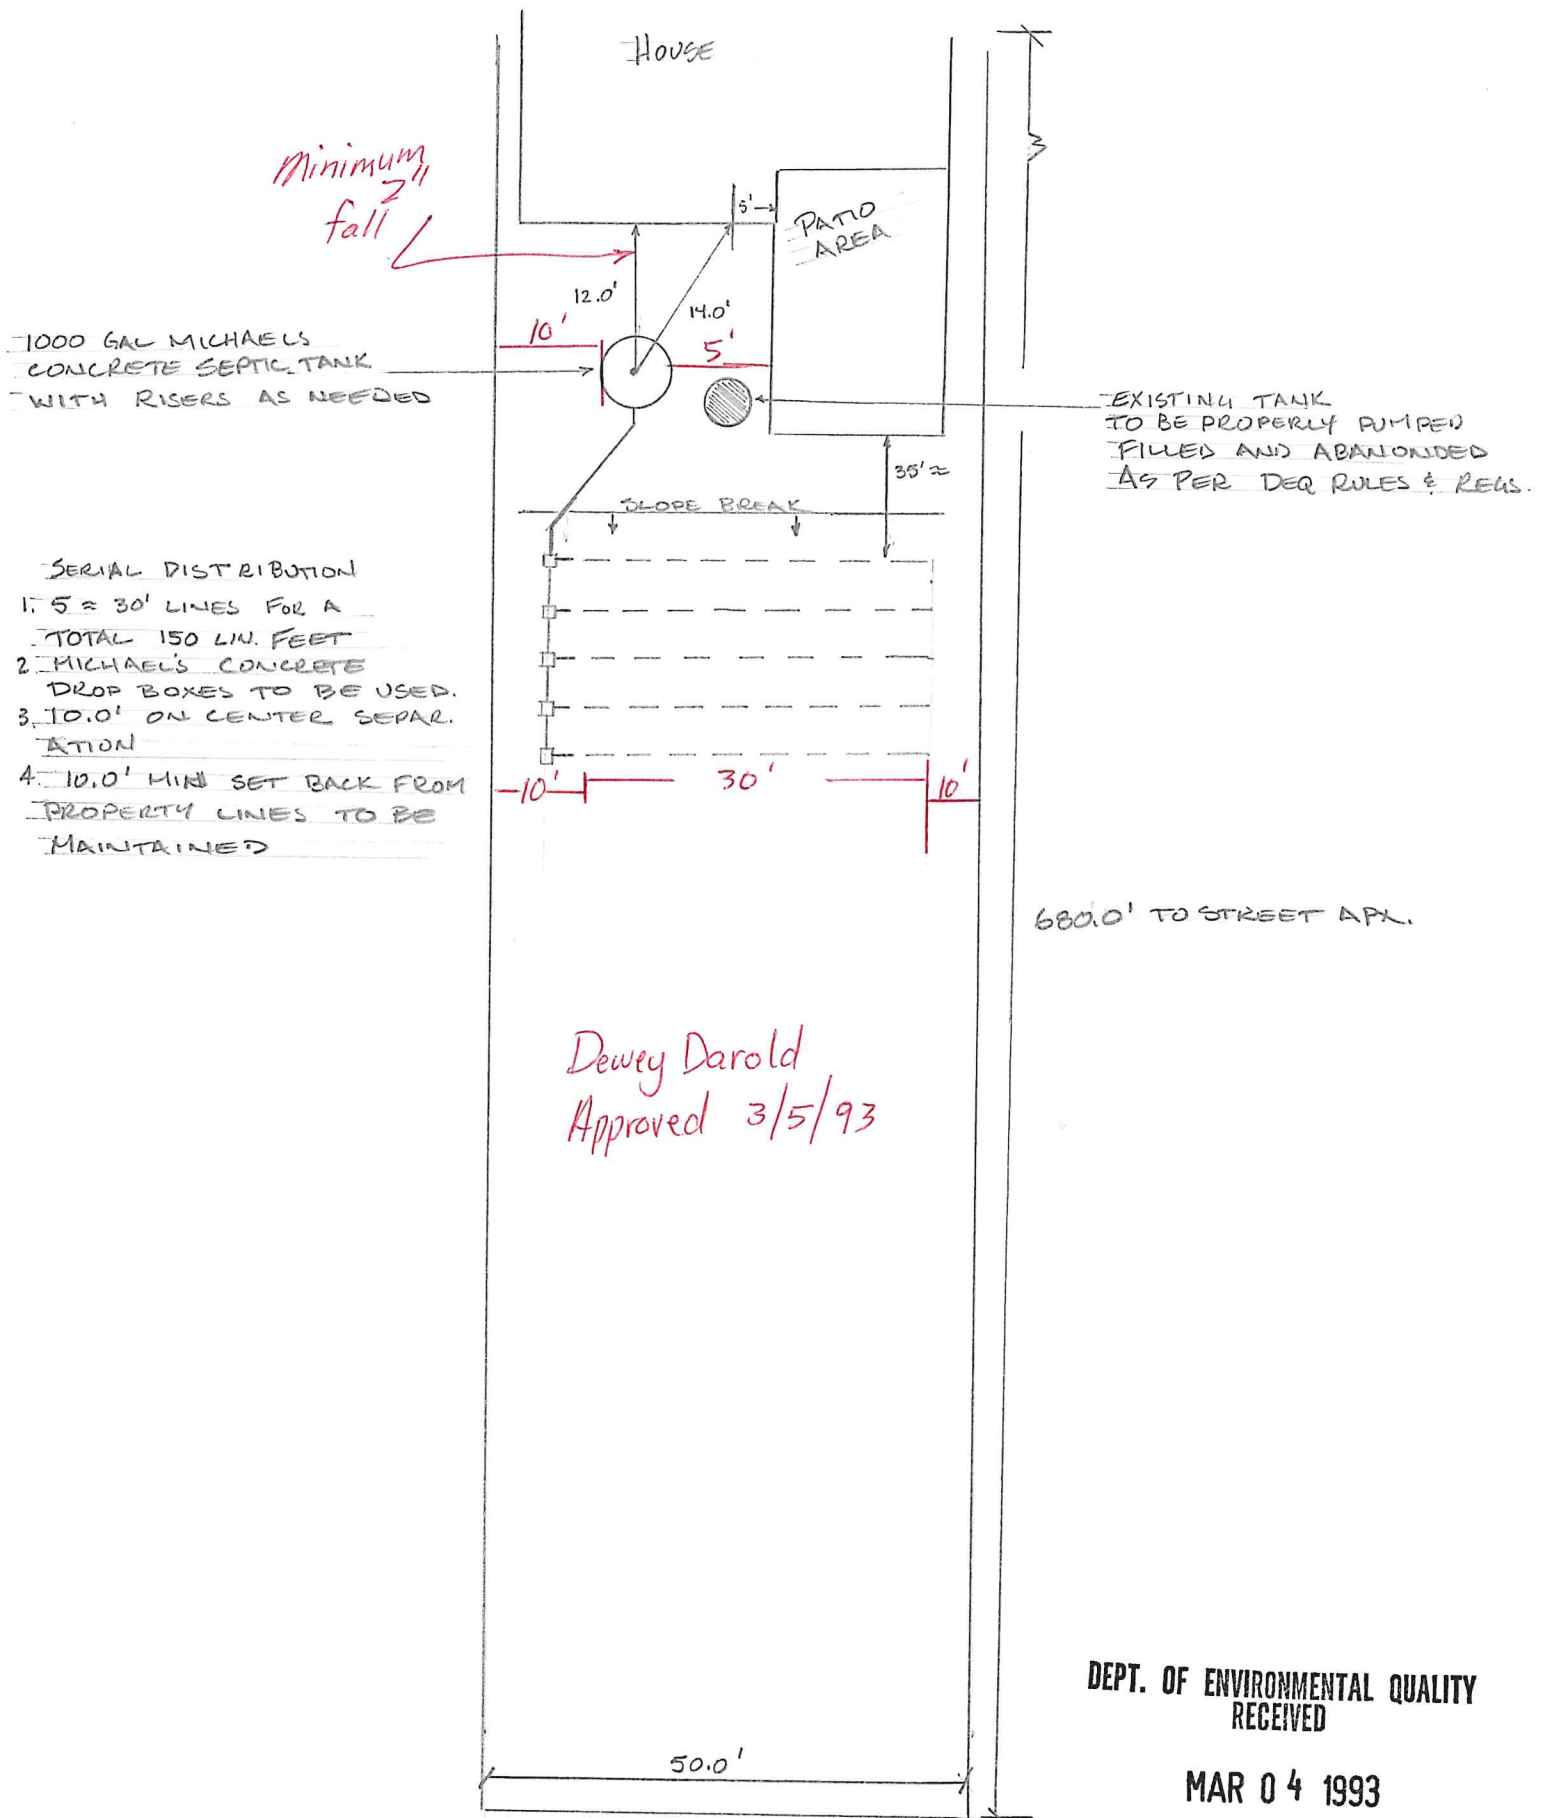 HOUSE
Minimum
2"
fall
5'
PATIO
AREA
12.0'
14.0'
10'
5'
1000 GAL MICHAELS
CONCRETE SEPTIC TANK
WITH RISERS AS NEEDED
EXISTING TANK
TO BE PROPERLY PUMPED
FILLED AND ABANONDED
AS PER DEQ RULES & REGS.
35' ≈
SLOPE BREAK
SERIAL DISTRIBUTION
1. 5 ≈ 30' LINES FOR A
TOTAL 150 LIN. FEET
2. MICHAEL'S CONCRETE
DROP BOXES TO BE USED.
3. 10.0' ON CENTER SEPAR.
ATION
4. 10.0' MIN SET BACK FROM
PROPERTY LINES TO BE
MAINTAINED
10'
30'
10'
680.0' TO STREET APX.
Dewey Darold
Approved 3/5/93
DEPT. OF ENVIRONMENTAL QUALITY
RECEIVED
MAR 04 1993
50.0'